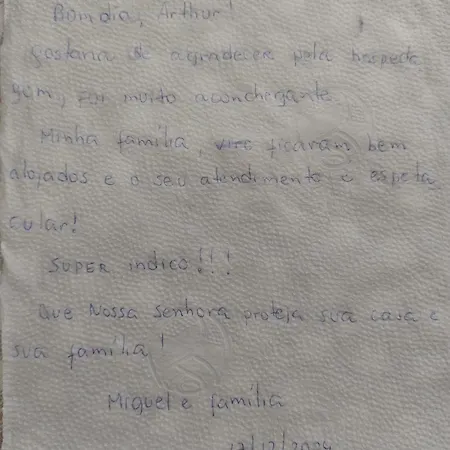 Bom dia, Arthur!
Gostaria de agradecer pela hospeda
gem, foi muito aconchegante.
Minha família, ficaram bem
alojados e o seu atendimento é espeta
cular!
SUPER indico!!!
Que Nossa Senhora proteja sua casa e
sua família!
Miguel e família
12/12/2024